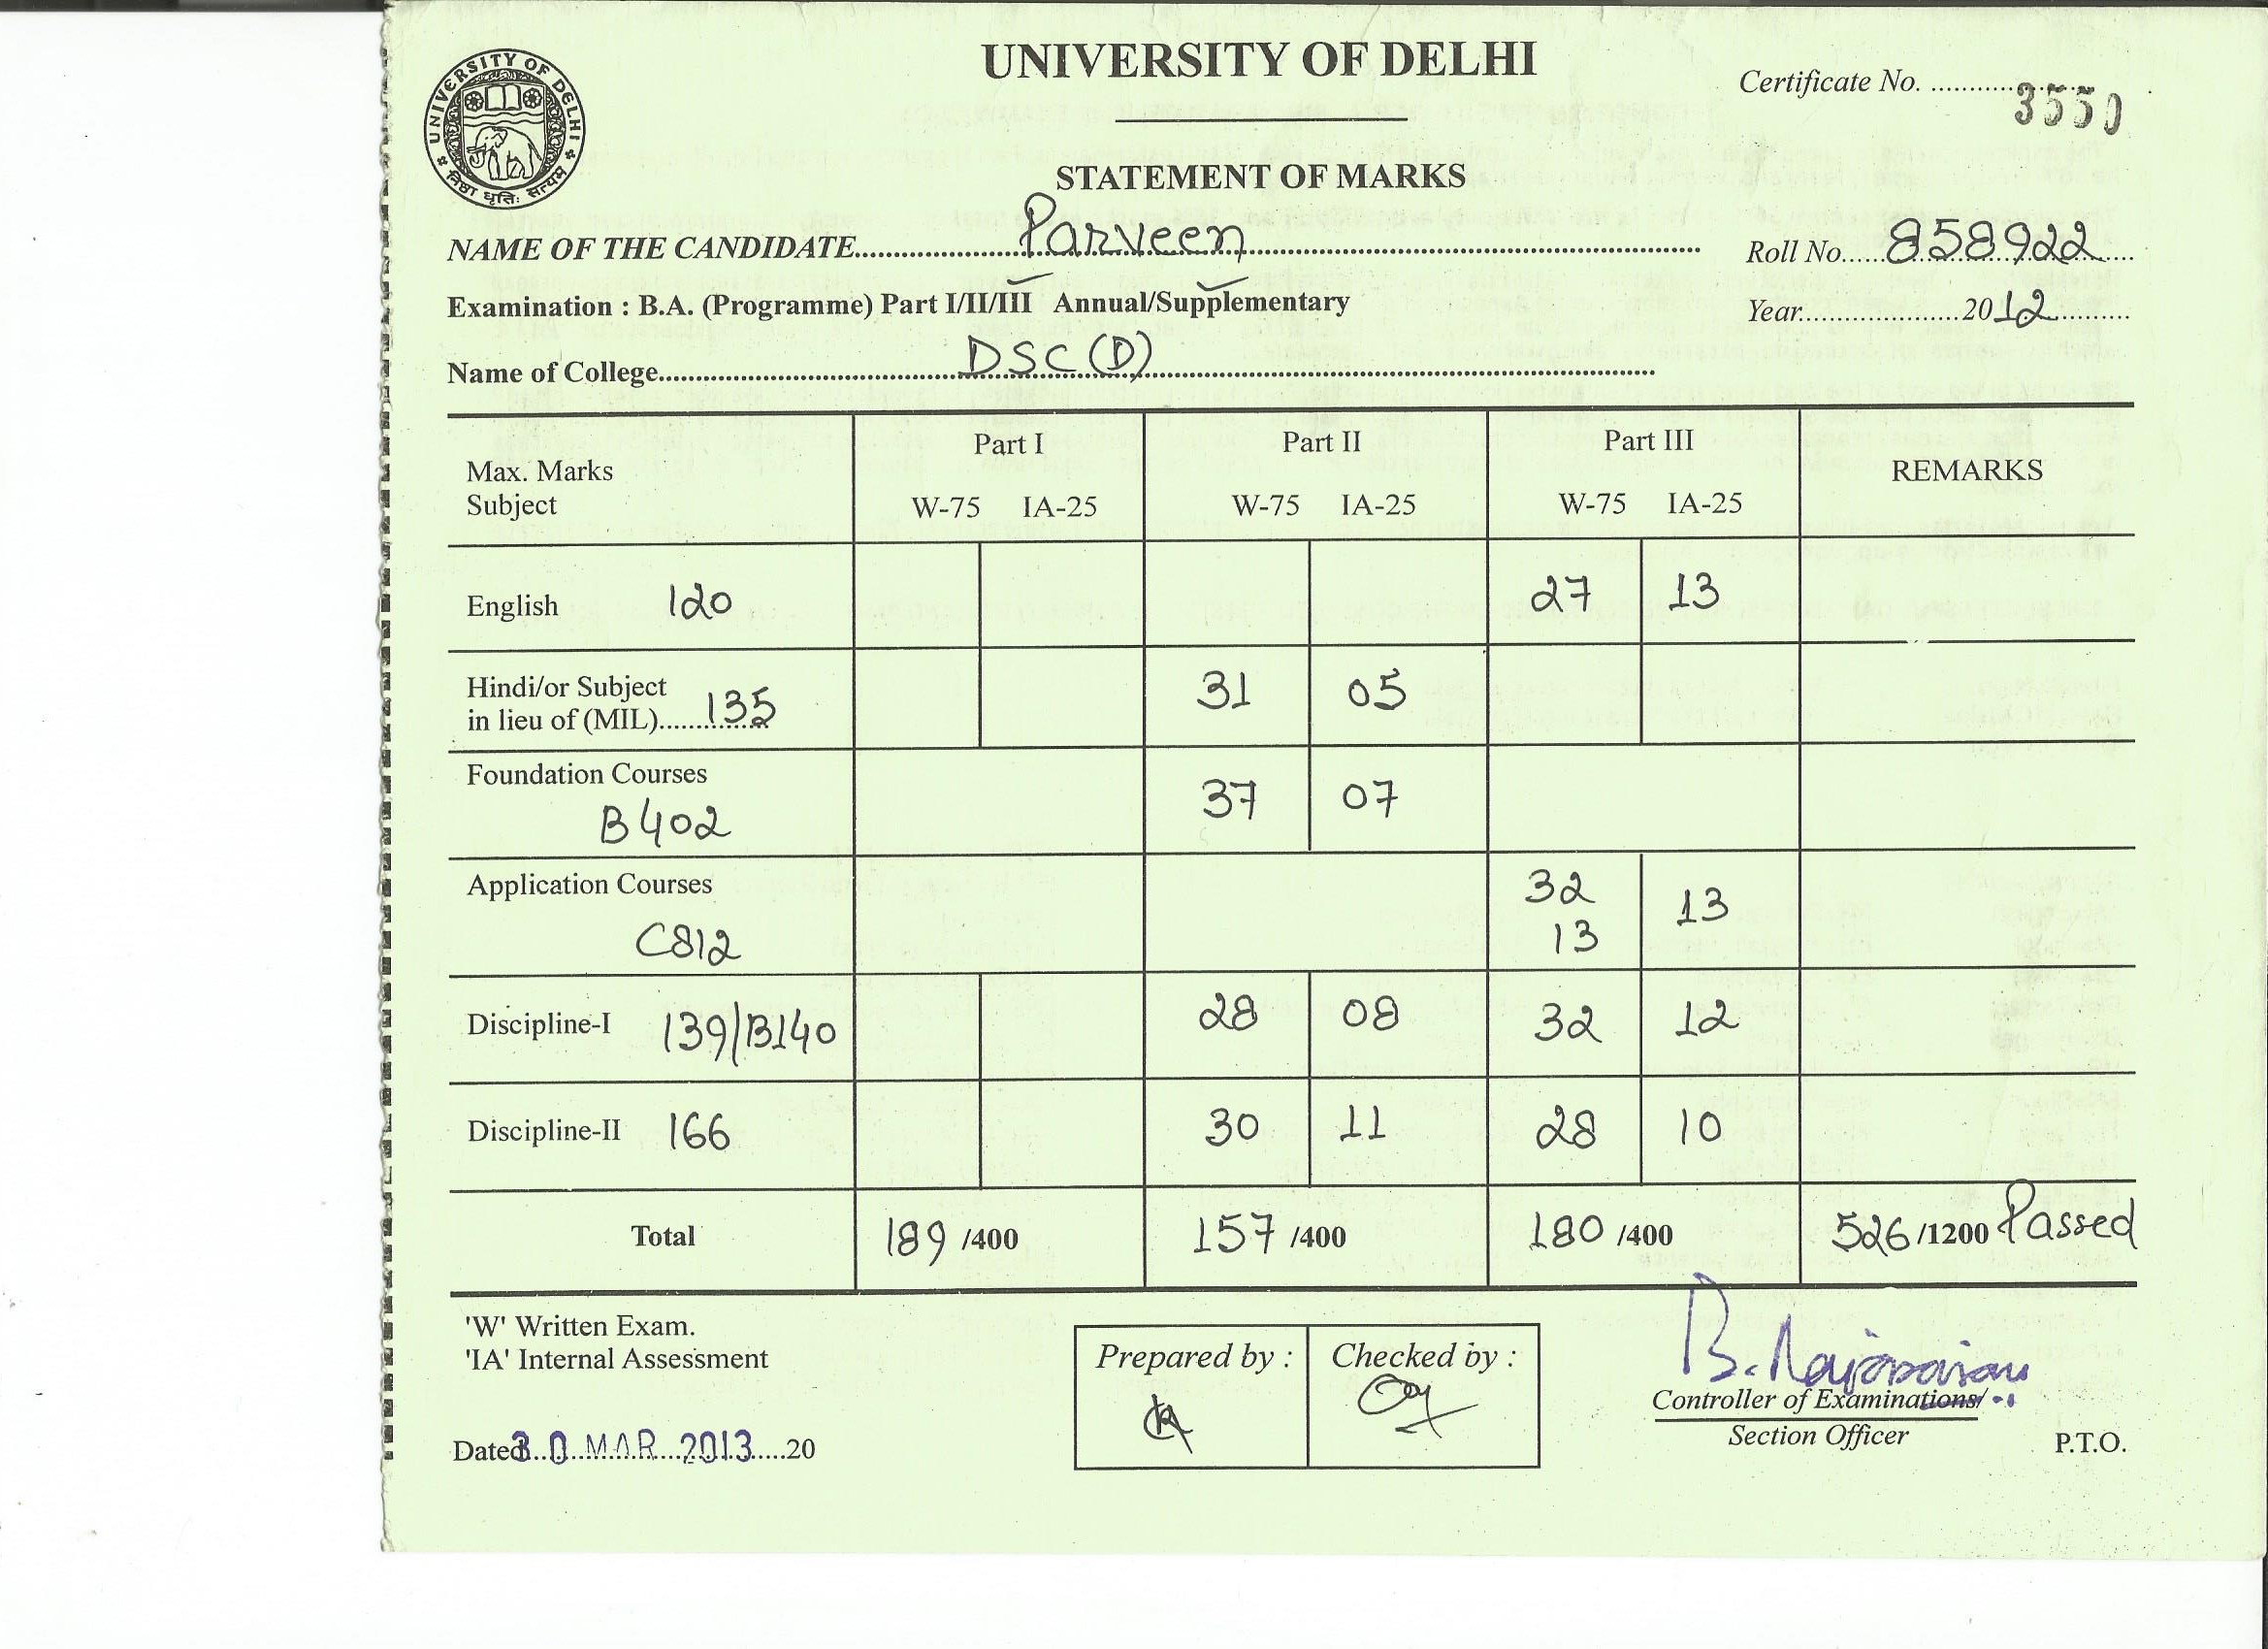 UNIVERSITY OF DELHI
UNIVERSITY OF DELHI
निष्ठा धृतिः सत्यम्
Certificate No. .................. 3550
STATEMENT OF MARKS
NAME OF THE CANDIDATE.......... Parveen ..........
Roll No..... 858922 ....
Examination : B.A. (Programme) Part I/II/III Annual/Supplementary
Year.....................2012..........
Name of College.......... DSC (D) ..........
Max. Marks
Subject
Part I Part II Part III REMARKS
W-75 IA-25 W-75 IA-25 W-75 IA-25
English 120 27 13
Hindi/or Subject
in lieu of (MIL)....... 135 31 05
Foundation Courses
B402 37 07
Application Courses 32
C812 13 13
Discipline-I 139/B140 28 08 32 12
Discipline-II 166 30 11 28 10
Total 189 /400 157 /400 180 /400 526 /1200 Passed
'W' Written Exam.
'IA' Internal Assessment
Prepared by : Checked by :
Controller of Examinations/
Section Officer
Dated 30 MAR 2013 20
P.T.O.